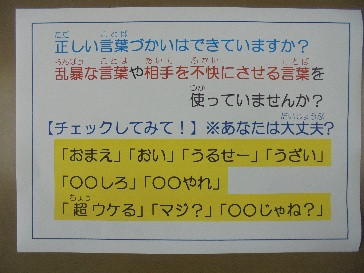 正しい言葉づかいはできていますか？
乱暴な言葉や相手を不快にさせる言葉を
使っていませんか？
【チェックしてみて！】※あなたは大丈夫？
「おまえ」「おい」「うるせー」「うざい」
「〇〇しろ」「〇〇やれ」
「超ウケる」「マジ？」「〇〇じゃね？」